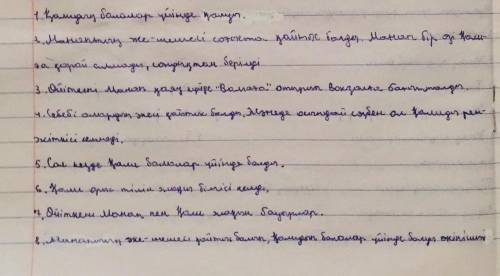 1. Қалидың балалар үйінде қалуы.
2. Манаптың әке-шешесі соғыста қайтыс болды. Манап бір өзі Қали-
ға қарай алмады, сондықтан берілді
3. Өйткені Манап қазір "Волата" отырып вокзалға бағытталды.
4. Себебі олардың әкесі қайтыс болды. Жәнеде осындай сөзбен ол Қалиды рен-
жіткісі келмеді.
5. Сол кезде Қали балалар үйінде болды.
6. Қали орыс тілін жақсы білгісі келді.
7. Өйткені Манап пен Қали жақын бауырлар.
8. Манаптың әке-шешесі қайтыс болып, Қалидың балалар үйінде болуы өкінішті